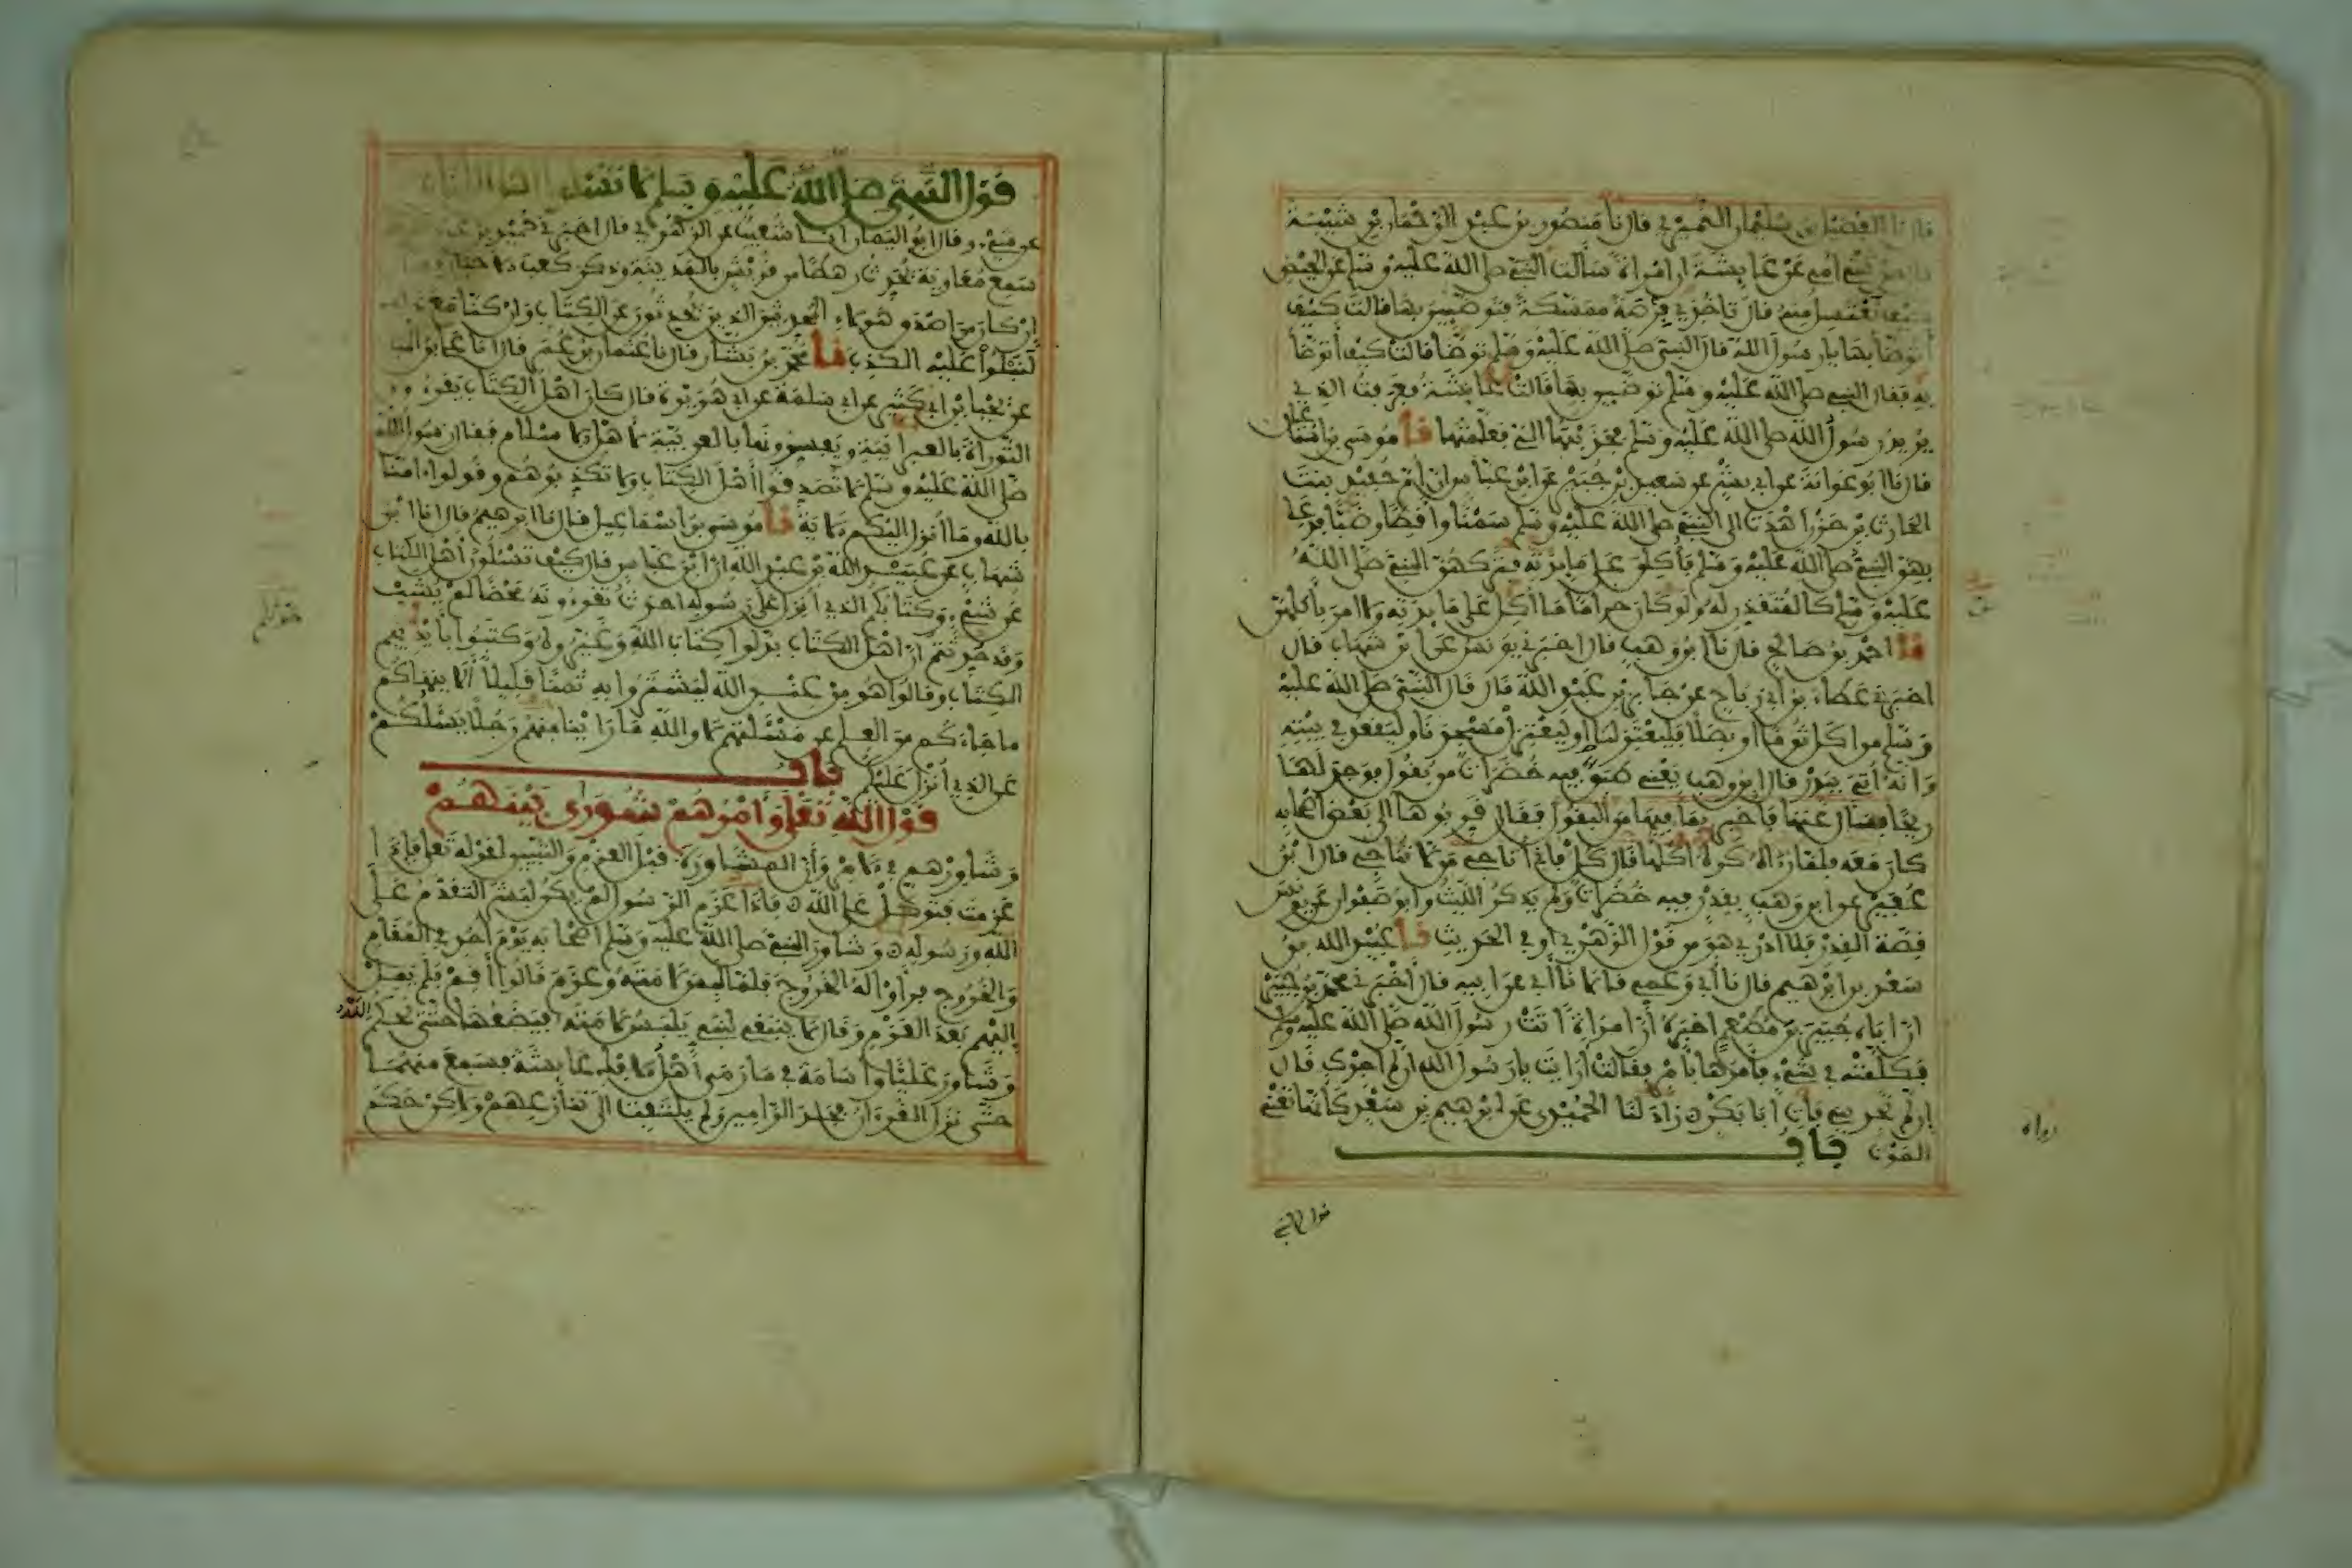 قال نا الفضيل بن سليمان النميري قال نا منصور بن عبد الرحمان بن شيبة
أمه عن عائشة ان امراة سألت النبي صلى الله عليه وسلم عن الحيض
كيف تغتسل منه قال تاخذي فرصة ممسكة فتوضيين بها قالت كيف
أتوضأ بها يا رسول الله قال النبي صلى الله عليه وسلم توضا قالت كيف أتوضأ
به فقال النبي صلى الله عليه وسلم توضيين بها قالت عائشة فعرفت الذي
يريد رسول الله صلى الله عليه وسلم فجذبتها الي فعلمتها نا موسى بن اسماعيل
قال نا ابو عوانة عن ابي بشر عن سعيد بن جبير عن ابن عباس ان ام حفيد بنت
الحارث بن حزن أهدت الى النبي صلى الله عليه وسلم سمنا وأقطا وضبا فدعا
بهن النبي صلى الله عليه وسلم فأكلن على مايدته فتركهن النبي صلى الله
عليه وسلم كالمتقذر له ولو كان حراما ما أكلن على مايدته ولا امر بأكلهن
نا احمد بن صالح قال نا ابن وهب قال اخبرني يونس عن ابن شهاب قال
اخبرني عطاء بن ابي رباح عن جابر بن عبد الله قال قال النبي صلى الله عليه
وسلم من اكل ثوما او بصلا فليعتزلنا او ليعتزل مسجدنا وليقعد في بيته
وانه أتي ببدر قال ابن وهب يعني طبق فيه خضرات من بقول فوجد لها
ريحا فسال عنها فأخبر بما فيها من البقول فقال قربوها الى بعض اصحابه
كان معه فلما راه كره اكلها قال كل فاني أناجي من لا تناجي قال ابن
عفير عن ابن وهب بقدر فيه خضرات ولم يذكر الليث وابو صفوان عن يونس
قصة القدر فلا ادري هو من قول الزهري او في الحديث نا عبيد الله بن
سعد بن ابرهيم قال نا أبي وعمي قالا نا أبي عن ابيه قال أخبرني محمد بن جبير
ان اباه جبير بن مطعم اخبره أن امراة اتت رسول الله صلى الله عليه وسلم
فكلمته في شيء فأمرها بأمر فقالت أرايت يا رسول الله ان لم اجدك قال
ان لم تجديني فأتي أبا بكر زاد لنا الحميدي عن ابرهيم بن سعد كأنها تعني
الموت باب
قول النبي
رواه
قول النبي صلى الله عليه وسلم لا تسئلوا
عن شيء وقال ابو اليمان انا شعيب عن الزهري قال اخبرني حميد بن عبد
سمع معاوية يحدث رهطا من قريش بالمدينة وذكر كعب الاحبار
ان كان من اصدق هولاء المحدثين الذين يحدثون عن الكتاب وان كنا مع ذلك
لنبلوا عليه الكذب نا محمد بن بشار قال نا عثمان بن عمر قال انا علي بن
عن يحيا بن ابي كثير عن ابي سلمة عن ابي هريرة قال كان اهل الكتاب يقرءون
التوراة بالعبرانية ويفسرونها بالعربية لاهل الاسلام فقال رسول الله
صلى الله عليه وسلم لا تصدقوا أهل الكتاب ولا تكذبوهم وقولوا ءامنا
بالله وما أنزل اليكم الاية نا موسى بن اسماعيل قال نا ابرهيم قال انا ابن
شهاب عن عبيد الله بن عبد الله ان ابن عباس قال كيف تسئلون أهل الكتاب
عن شيء وكتابكم الذي أنزل على رسوله احدث تقرءونه محضا لم يشب
وقد حدثتم ان اهل الكتاب بدلوا كتاب الله وغيروه وكتبوا بأيديهم
الكتاب وقالوا هو من عند الله ليشتروا به ثمنا قليلا ألا ينهاكم
ما جاءكم من العلم عن مسئلتهم لا والله ما راينا منهم رجلا يسئلكم
عن الذي أنزل عليكم باب
قول الله تعلى وأمرهم شورى بينهم
وشاورهم في الامر وأن المشاورة قبل العزم والتبين لقوله تعلى فإذا
عزمت فتوكل على الله فاذا عزم الرسول لم يكن لبشر التقدم على
الله ورسوله وشاور النبي صلى الله عليه وسلم أصحابه يوم أحد في المقام
والخروج فرأوا له الخروج فلما لبس لامته وعزم قالوا أقم فلم يمل
إليهم بعد العزم وقال لا ينبغي لنبي يلبس لامته فيضعها حتى يحكم الله
وشاور عليا وأسامة في ما رمى أهل الافك عائشة فسمع منهما
حتى نزل القرءان فجلد الرامين ولم يلتفت الى تنازعهم ولاكن حكم